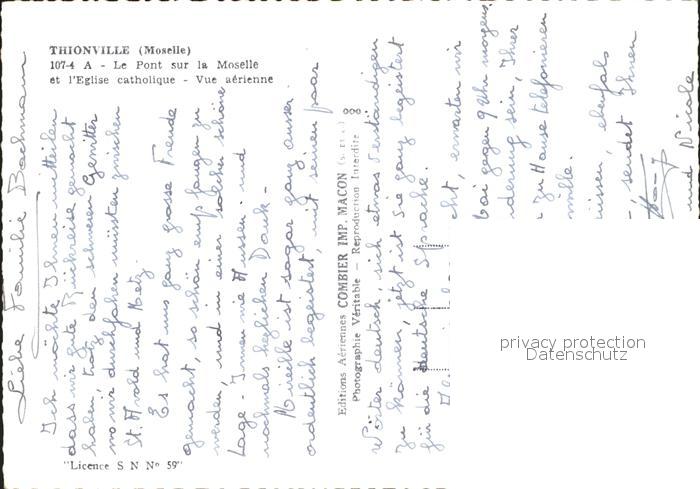 THIONVILLE (Moselle)
107-4 A - Le Pont sur la Moselle
et l'Eglise catholique - Vue aérienne
Liebe Familie Bachmann
Ich möchte Ihnen mitteilen
dass wir gute Rückreise gemacht
haben, trotz den schweren Gewitter
wo wir durchfahren müssten zwischen
St. Avold und Metz.
Es hat uns ganz grosse Freude
gemacht, so schön empfangen zu
werden, und in einer solchen schöne
Lage - Innen wie Aussen. und
nochmals herzlichen Dank -
Mireille ist sogar ganz ausser
ordentlich begeistert, mit seinen paar
Editions Aériennes COMBIER IMP. MACON
Photographie Véritable - Reproduction Interdite
Wörter deutsch, sich etwas verständigen
zu können, jetzt ist Sie ganz begeistert
für die deutsche Sprache.
cht, erwarten wir
bai gegen 9 Uhr morgens
derung sein, Ihrer
zu Hause telefonieren
wolle.
üssen, ebenfals
- sendet Ihnen
und Nicole
privacy protection
Datenschutz
"Licence S N N° 59"